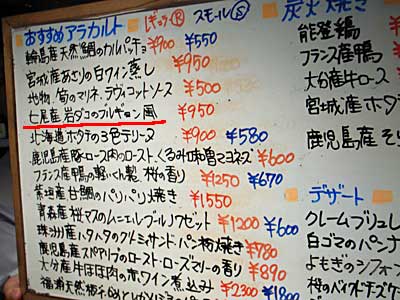 おすすめアラカルト レギュラーⓇ スモールⓈ
輪島産天然鯛のカルパッチョ ¥900 ¥550
宮城産あさりの白ワイン蒸し ¥950
地物 筍のマリネ、ラヴィゴットソース ¥500
七尾産 岩ダコのブルギニョン風 ¥950
北海道ホタテの3色テリーヌ ¥900 ¥580
鹿児島産豚ロース肉のロースト、くるみ味噌マヨネーズ ¥600
フランス産鴨の軽いくん製 桜の香り ¥1250 ¥670
甘鯛のパリパリ焼き ¥1550
青森産 桜マスのムニエル ブルノワゼット ¥1200 ¥600
珠洲産ハタハタのクルミ、サンド、パン粉焼き ¥780
鹿児島産スペアリブのロースト・ローズマリーの香り ¥890
大分産牛ほほ肉の赤ワイン煮込み ¥2300 ¥1800
炭火焼き
能登鶏
フランス産鴨
大分産牛ロース
宮城産ホタテ
鹿児島産
デザート
クレームブリュレ
白ゴマのパンナ
よもぎのシフォン